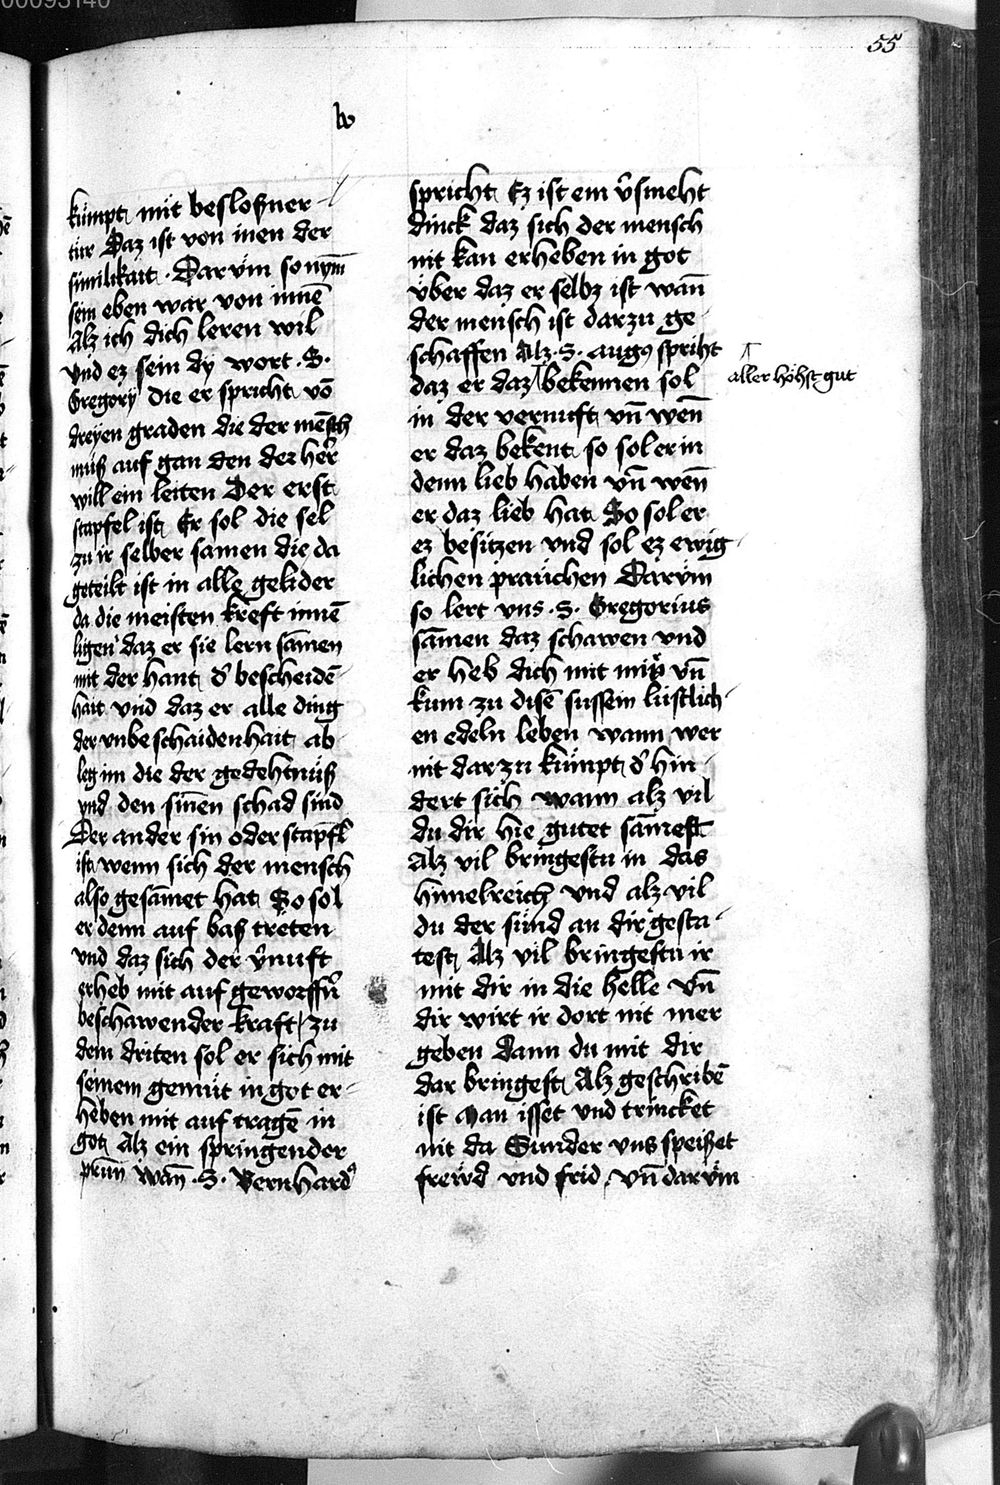 55
kümpt mit besloßner
tür Daz ist von inen der
similikait · Dar vm̄ so nym̄
sein eben war von inne͞
Alz ich dich leren wil
Vnd ez sein dy wort · S ·
Gregory die er spricht vo͞
dreyen graden die der me͞sch
muß auf gan den der he͞r
will ein leiten Der erst
stapfel ist Er sol die sel
zu ir selber samen die da
geteilt ist in alle gelider
da die meisten kreft inne͞
ligen daz er sie lern sa͞men
mit der hant d᷑ bescheide͞
hait vnd daz er alle ding
der vnbeschaidenhait ab
leg im die der gedehtnüß
vnd den sin͞en schad sind
Der ander sin oder stapfl᷑
ist wenn sich der mensch
also gesa͞met hat So sol
er denn auf baß treten
vnd daz sich der v᷑nuft
erheb mit auf geworffn᷑
beschawender kraft zu
dem driten sol er sich mit
seinem gemüt in got er-
heben mit auf trage͞ in
got Alz ein springender
prun͞ Wan͞ · S · Bernhard᷒
spricht Ez ist ein v᷑smeht
dinck daz sich der mensch
nit kan erheben in got
v̈ber daz er selbz ist wan͞
der mensch ist darzu ge-
schaffen Alz · S · aug᷒ spriht
daz er daz bekennen sol
aller höhst gut
in der vernuft vn͞ wen͞
er daz bekent so sol er in
denn lieb haben vn͞ wen͞
er daz lieb hat So sol er
ez besitzen vnd sol ez ewig-
lichen praüchen Darüm
so lert vns · S · Gregorius
sa͞men daz schawen vnd
er heb dich mit mir vn͞
kum zu dise͞ sussem lüstlich-
en edeln leben wann wer
nit dar zu kümpt d᷑ hin-
dert sich wann alz vil
du dir hie gutet sa͞mest
Alz vil bringestu in das
himelreich vnd alz vil
du der sünd an dir gesta-
test Alz vil bringestu ir
mit dir in die helle vn͞
dir wirt ir dort nit mer
geben Dann du mit dir
dar bringest Alz geschribe͞
ist Man isset vnd trincket
nit da Sunder vns speißet
frewd vnd frid vn͞ darüm